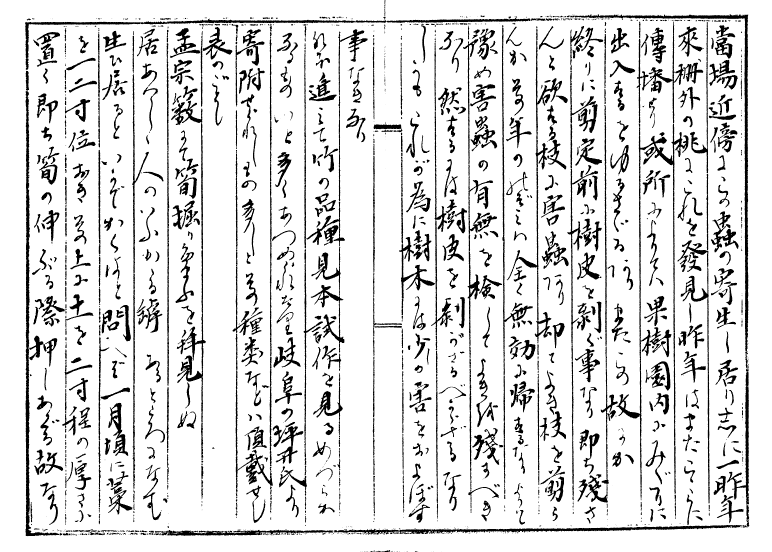 當場近傍にこの蟲の寄生し居りしに一昨年
來柵外の桃にこれを發見し昨年はまたこゝに
傳播せり或所によりては果樹園内にみだりに
出入するをゆるさゞるあり またこの故にか
終りに剪定前に樹皮を剝ぐ事なり 即ち殘さ
んと欲する枝に害蟲あり 却てよき枝を剪ら
んか 其年の全く無効に帰するなり よつて
豫め害蟲の有無を檢して よき枝を殘すべき
なり 然るには樹皮を剝がざるべからざるなり
しかもこれが為に樹木には少しの害をおよぼす
事なきなり
なほ進みて竹の品種見本試作を見る めづらし
きもの いと多くあつめられたり 岐阜の坪井氏より
寄附せられしもの多しと 其種類などは頂戴せし
表のごとし
孟宗籔にて筍掘り給ふを拝見しぬ
居ながら人のいふかゝる
生ひ居ると いかでかくはと問へば 一月頃に藁
を一二寸位おき 其上に土を二寸程の厚さに
置く 即ち筍の伸ぶる際押しあぐる故なり